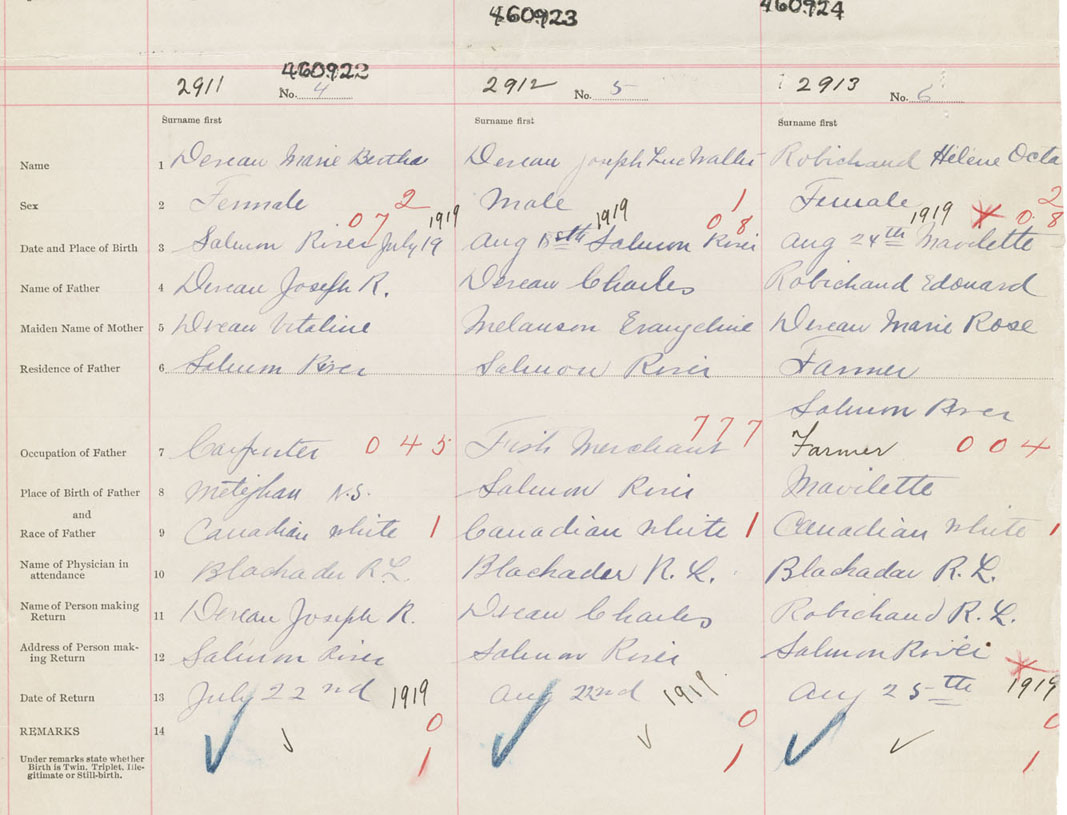 460923
460924
460922
2911 No. 4
2912 No. 5
2913 No. 6
Surname first Surname first Surname first
Name 1 Deveau Marie Bertha Deveau Joseph Luc Walli Robichaud Hélène Octa
Sex 2 Female 2 Male 1 Female 2
07 1919 1919 08 1919 08
Date and Place of Birth 3 Salmon River July 19 Aug Salmon River Aug 24th Mavilette
Name of Father 4 Deveau Joseph R. Deveau Charles Robichaud Edouard
Maiden Name of Mother 5 Deveau Vitaline Melanson Evangeline Deveau Marie Rose
Residence of Father 6 Salmon River Salmon River Farmer
Salmon River
Occupation of Father 7 Carpenter 045 Fish Merchant 777 Farmer 004
Place of Birth of Father 8 Meteghan N.S. Salmon River Mavilette
and
Race of Father 9 Canadian White 1 Canadian White 1 Canadian White 1
Name of Physician in
attendance 10 Blachadar R.L. Blachadar R. L. Blachadar R. L.
Name of Person making
Return 11 Deveau Joseph R. Deveau Charles Robichaud R. L.
Address of Person mak-
ing Return 12 Salmon River Salmon River Salmon River
Date of Return 13 July 22nd 1919 Aug 22nd 1919 Aug 25th 1919
REMARKS 14 0 0 0
Under remarks state whether
Birth is Twin, Triplet, Ille-
gitimate or Still-birth. 1 1 1